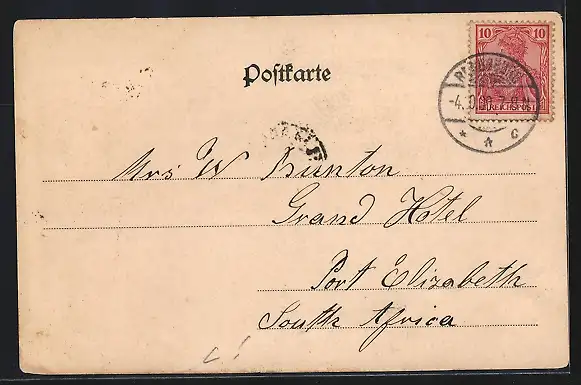 Postkarte
10 10
REICHSPOST
* * c
Mrs W Bunton
Grand Hotel
Port Elizabeth
South Africa